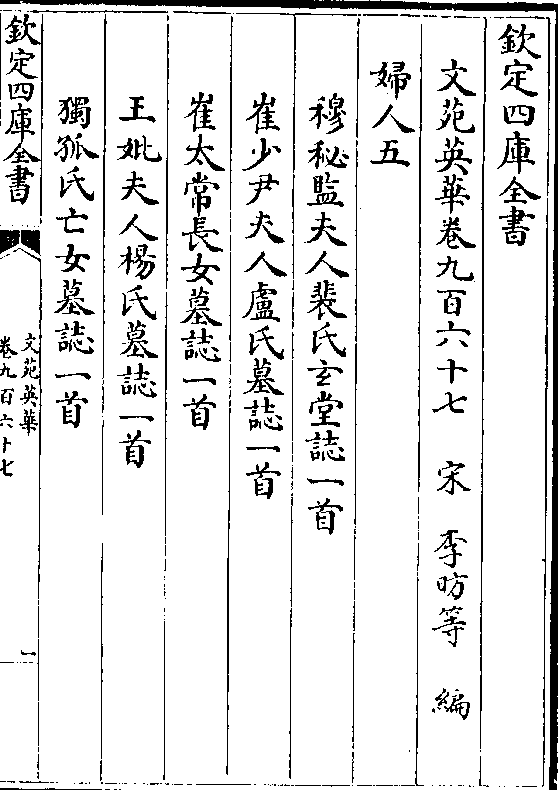 欽定四庫全書
文苑英華卷九百六十七　宋　李昉等　編
婦人五
穆秘監夫人裴氏玄堂誌一首
崔少尹夫人盧氏墓誌一首
崔太常長女墓誌一首
王妣夫人楊氏墓誌一首
獨孤氏亡女墓誌一首
欽定四庫全書
文苑英華
卷九百六十七
一